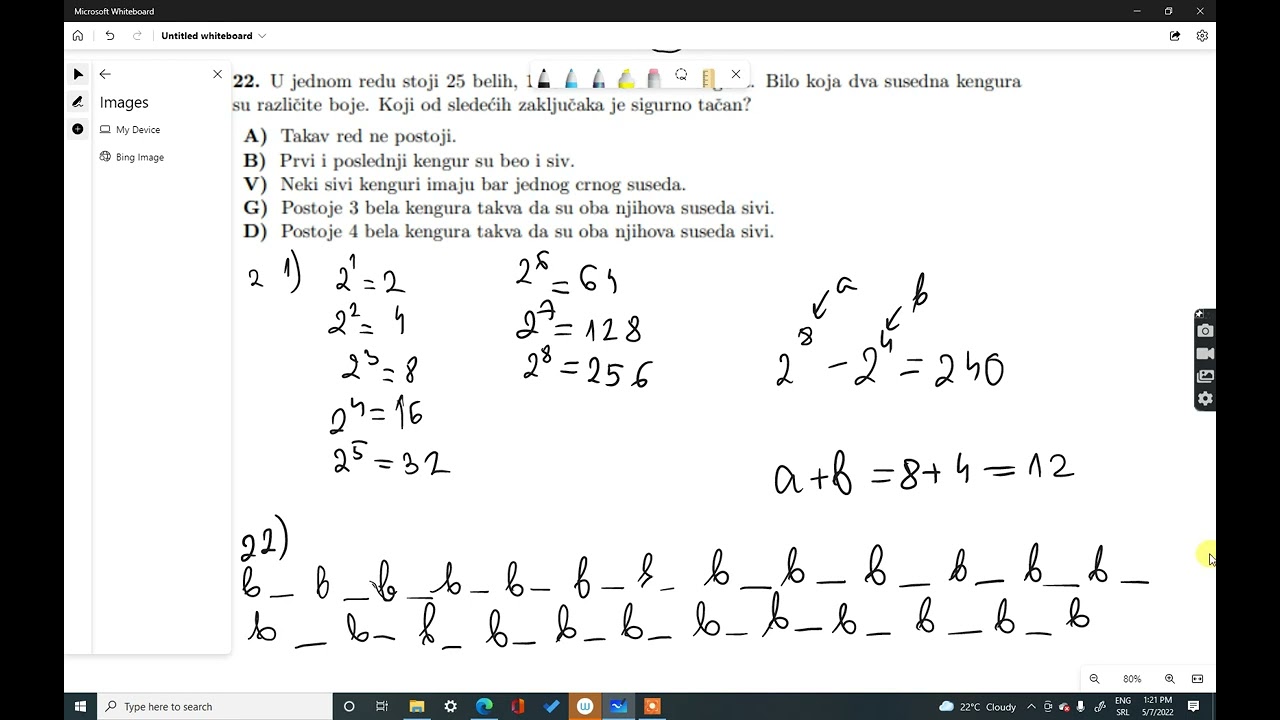 Microsoft Whiteboard
Untitled whiteboard
Images
My Device
Bing Image
22. U jednom redu stoji 25 belih, Bilo koja dva susedna kengura
su različite boje. Koji od sledećih zaključaka je sigurno tačan?
A) Takav red ne postoji.
B) Prvi i poslednji kengur su beo i siv.
V) Neki sivi kenguri imaju bar jednog crnog suseda.
G) Postoje 3 bela kengura takva da su oba njihova suseda sivi.
D) Postoje 4 bela kengura takva da su oba njihova suseda sivi.
21) 2^1 = 2 2^6 = 64
2^2 = 4 2^7 = 128
2^3 = 8 2^8 = 256
2^4 = 16
2^5 = 32
a b
2^8 - 2^4 = 240
a + b = 8 + 4 = 12
22)
b _ b _ b _ b _ b _ b _ b _ b _ b _ b _ b _ b _ b _
b _ b _ b _ b _ b _ b _ b _ b _ b _ b _ b _ b
80%
Type here to search
22°C Cloudy
ENG
SRL
1:21 PM
5/7/2022